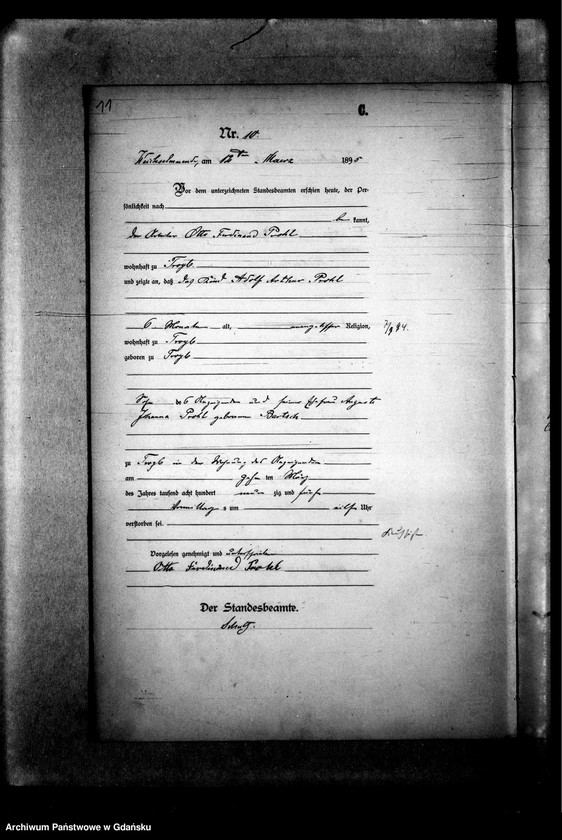 11
C.
Nr. 10.
Weichselmuende, am 12ten Maerz 1895
Vor dem unterzeichneten Standesbeamten erschien heute, der Per-
sönlichkeit nach
be kannt,
der Arbeiter Otto Ferdinand Prohl
wohnhaft zu Troyl
und zeigte an, daß das Kind Adolf Arthur Prohl
6 Monate alt, evangelischer Religion, 7/9 94.
wohnhaft zu Troyl
geboren zu Troyl
Sohn des Anzeigenden und seiner Ehefrau Auguste
Johanna Prohl geborenen Bartsch
zu Troyl in der Wohnung des Anzeigenden
am zehn ten März
des Jahres tausend acht hundert neun zig und fünf
Vormittags um elf Uhr
verstorben sei.
Vorgelesen genehmigt und unterschrieben
Otto Ferdinand Prohl
Der Standesbeamte.
Schulz.
Archiwum Państwowe w Gdańsku